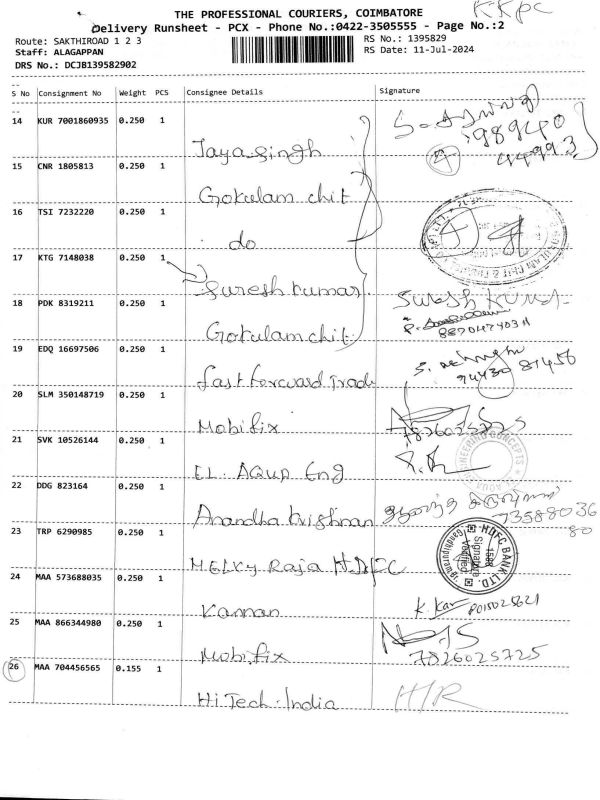 KKPC
THE PROFESSIONAL COURIERS, COIMBATORE
Delivery Runsheet - PCX - Phone No.:0422-3505555 - Page No.:2
Route: SAKTHIROAD 1 2 3
RS No.: 1395829
Staff: ALAGAPPAN
RS Date: 11-Jul-2024
DRS No.: DCJB139582902
S No Consignment No Weight PCS Consignee Details Signature
14 KUR 7001860935 0.250 1
98940
44993
Jayasingh
15 CNR 1805813 0.250 1
Gokulam chit
16 TSI 7232220 0.250 1
do
17 KTG 7148038 0.250 1
Suresh kumar
18 PDK 8319211 0.250 1
SURESH KUMAR
8870474031
Gokulam chit
19 EDQ 16697506 0.250 1
94430 81456
fast forward Trade
20 SLM 350148719 0.250 1
Mobifix
7826025725
21 SVK 10526144 0.250 1
EL. AQUA Eng
22 DDG 823164 0.250 1
Anandha krishnan
7358803680
23 TRP 6290985 0.250 1
MELKY Raja HDFC
HDFC BANK LTD.
Signature Verified
24 MAA 573688035 0.250 1
Kannan
K. Kan 8015025621
25 MAA 866344980 0.250 1
Mobifix
7826025725
26 MAA 704456565 0.155 1
Hi Tech India